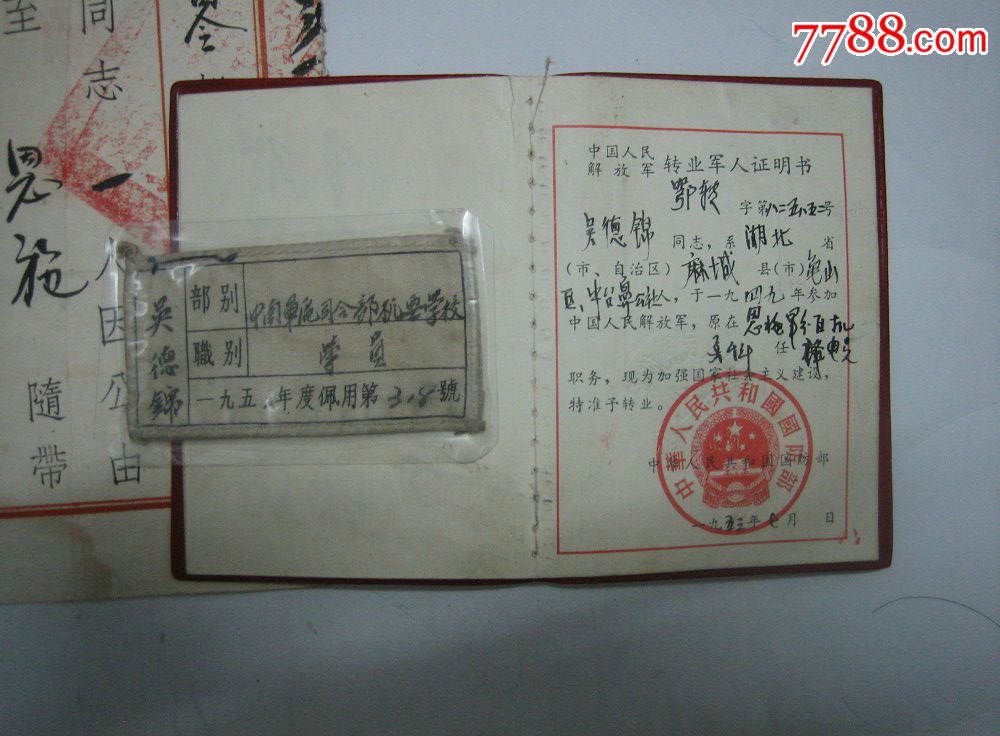 7788.com
同志
至
恩施
一
因公由
隨帶
吴德錦
部别
中南軍區司令部机要学校
職别
学員
一九五 年度佩用第318號
中国人民
解放军 转业军人证明书
鄂转 字第八二五八五二号
吴德锦 同志,系 湖北 省
(市、自治区) 麻城 县(市) 龟山
区 人,于一九四九年参加
中国人民解放军,原在 恩施军分区
任
职务,现为加强国家社会主义建设,
特准予转业。
中华人民共和国国防部
中華人民共和國國防部
一九五三年七月 日